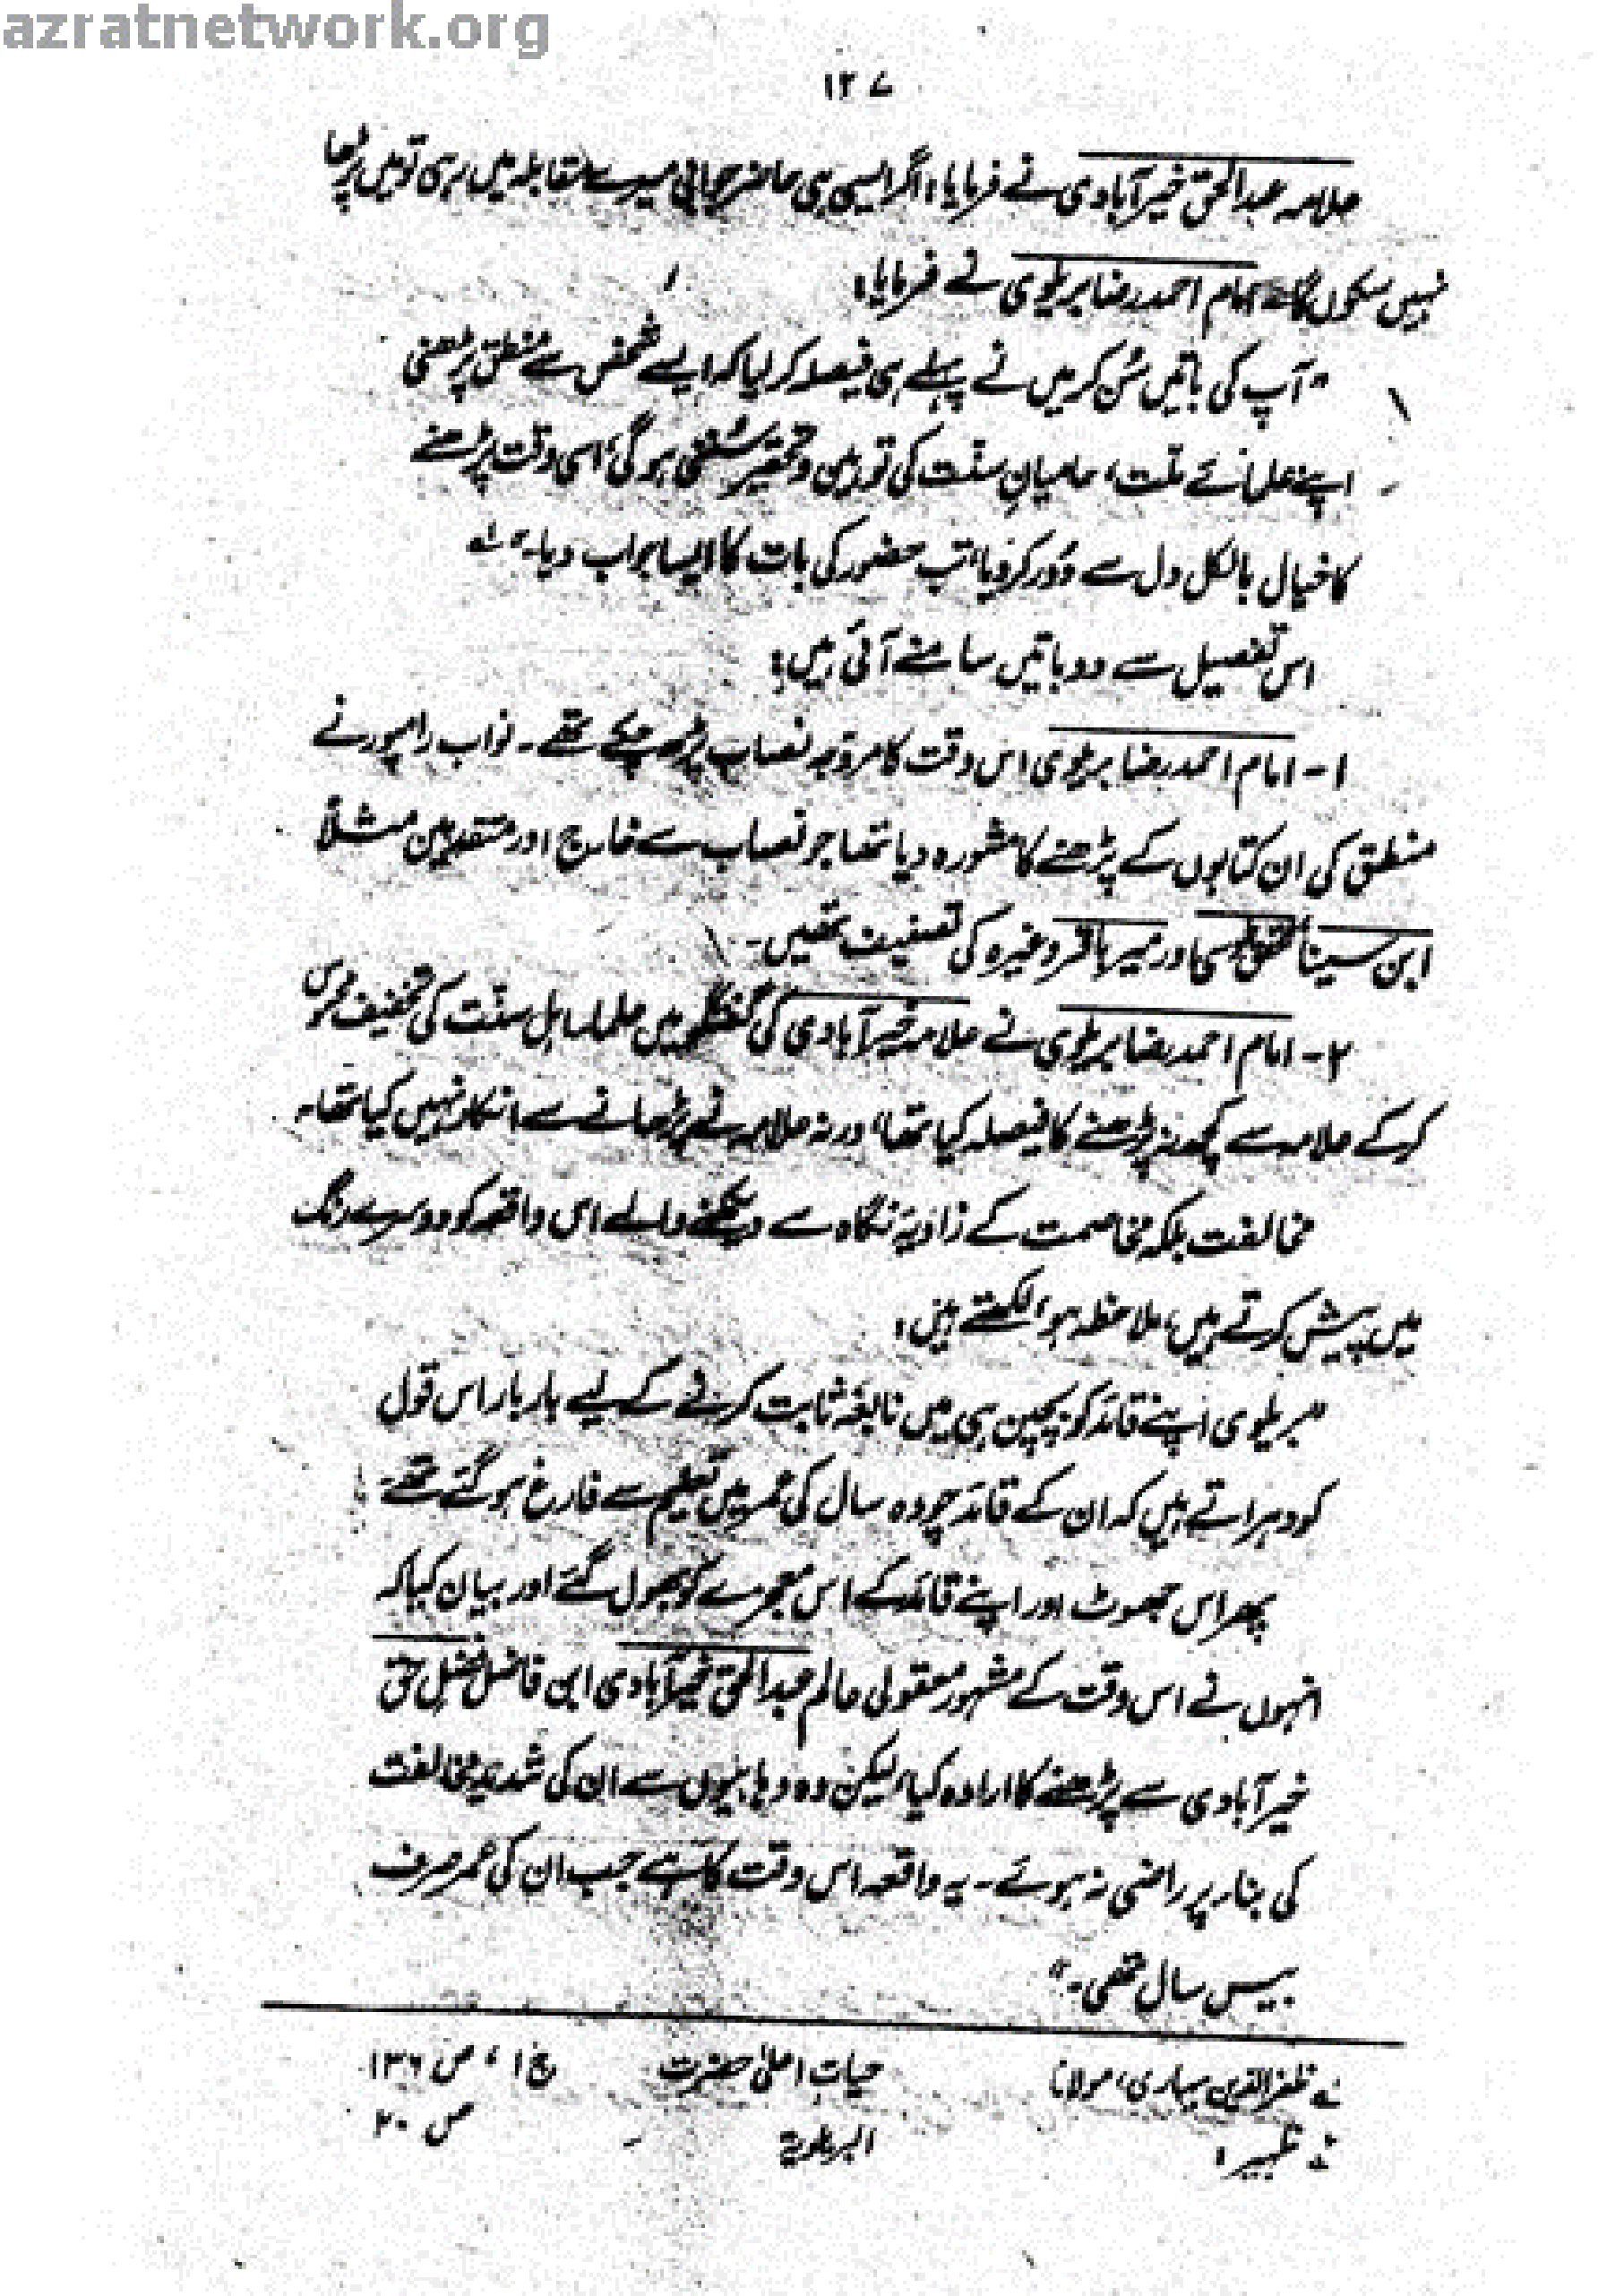 azratnetwork.org
۱۲۷
علامہ عبدالحق خیرآبادی نے فرمایا: اگر ایسی ہی حاضر جوابی میرے مقابلہ میں رہی تو میں پڑھا
نہیں سکوں گا۔ امام احمد رضا بریلوی نے فرمایا:
"آپ کی باتیں سُن کر میں نے پہلے ہی فیصلا کر لیا کہ ایسے شخص سے منطق پڑھنی
اپنے علمائے ملت، حامیانِ سنت کی توہین و تحقیر سُننی ہوگی، اسی وقت پڑھنے
کا خیال بالکل دل سے دُور کر دیا، تب حضور کی بات کا ایسا جواب دیا۔" لے
اس تفصیل سے دو باتیں سامنے آئی ہیں:
۱- امام احمد رضا بریلوی اس وقت کا مروّجہ نصاب پڑھ چکے تھے۔ نواب رامپور نے
منطق کی ان کتابوں کے پڑھنے کا مشورہ دیا تھا جو نصاب سے خارج اور متقدمین مثلاً
ابن سینا محقق طوسی اور میر باقر وغیرہ کی تصنیف تھیں۔
۲- امام احمد رضا بریلوی نے علامہ خیرآبادی کی گفتگو میں علماء اہل سنّت کی تخفیف محسوس
کر کے علامہ سے کچھ نہ پڑھنے کا فیصلہ کیا تھا، ورنہ علامہ نے پڑھانے سے انکار نہیں کیا تھا۔
مخالفت بلکہ مخاصمت کے زاویۂ نگاہ سے دیکھنے والے اس واقعہ کو دوسرے رنگ
میں پیش کرتے ہیں، ملاحظہ ہو، لکھتے ہیں:
"بریلوی اپنے قائد کو بچپن ہی میں نابغہ ثابت کرنے کے لیے بار بار اس قول
کو دہراتے ہیں کہ ان کے قائد چودہ سال کی عمر میں تعلیم سے فارغ ہو گئے تھے۔
پھر اس جھوٹ اور اپنے قائد کے اس معجزے کو بھول گئے اور بیان کیا کہ
انہوں نے اس وقت کے مشہور معقولی عالم عبدالحق خیرآبادی ابن فاضل فضل حق
خیرآبادی سے پڑھنے کا ارادہ کیا، لیکن وہ وہابیوں سے ان کی شدید مخالفت
کی بناء پر راضی نہ ہوئے۔ یہ واقعہ اس وقت کا ہے جب ان کی عمر صرف
بیس سال تھی۔"
لے ظفرالدین بہاری، مولانا حیاتِ اعلیٰ حضرت ج ۱، ص ۱۳۶
ظہیر: البریلویۃ ص ۲۰